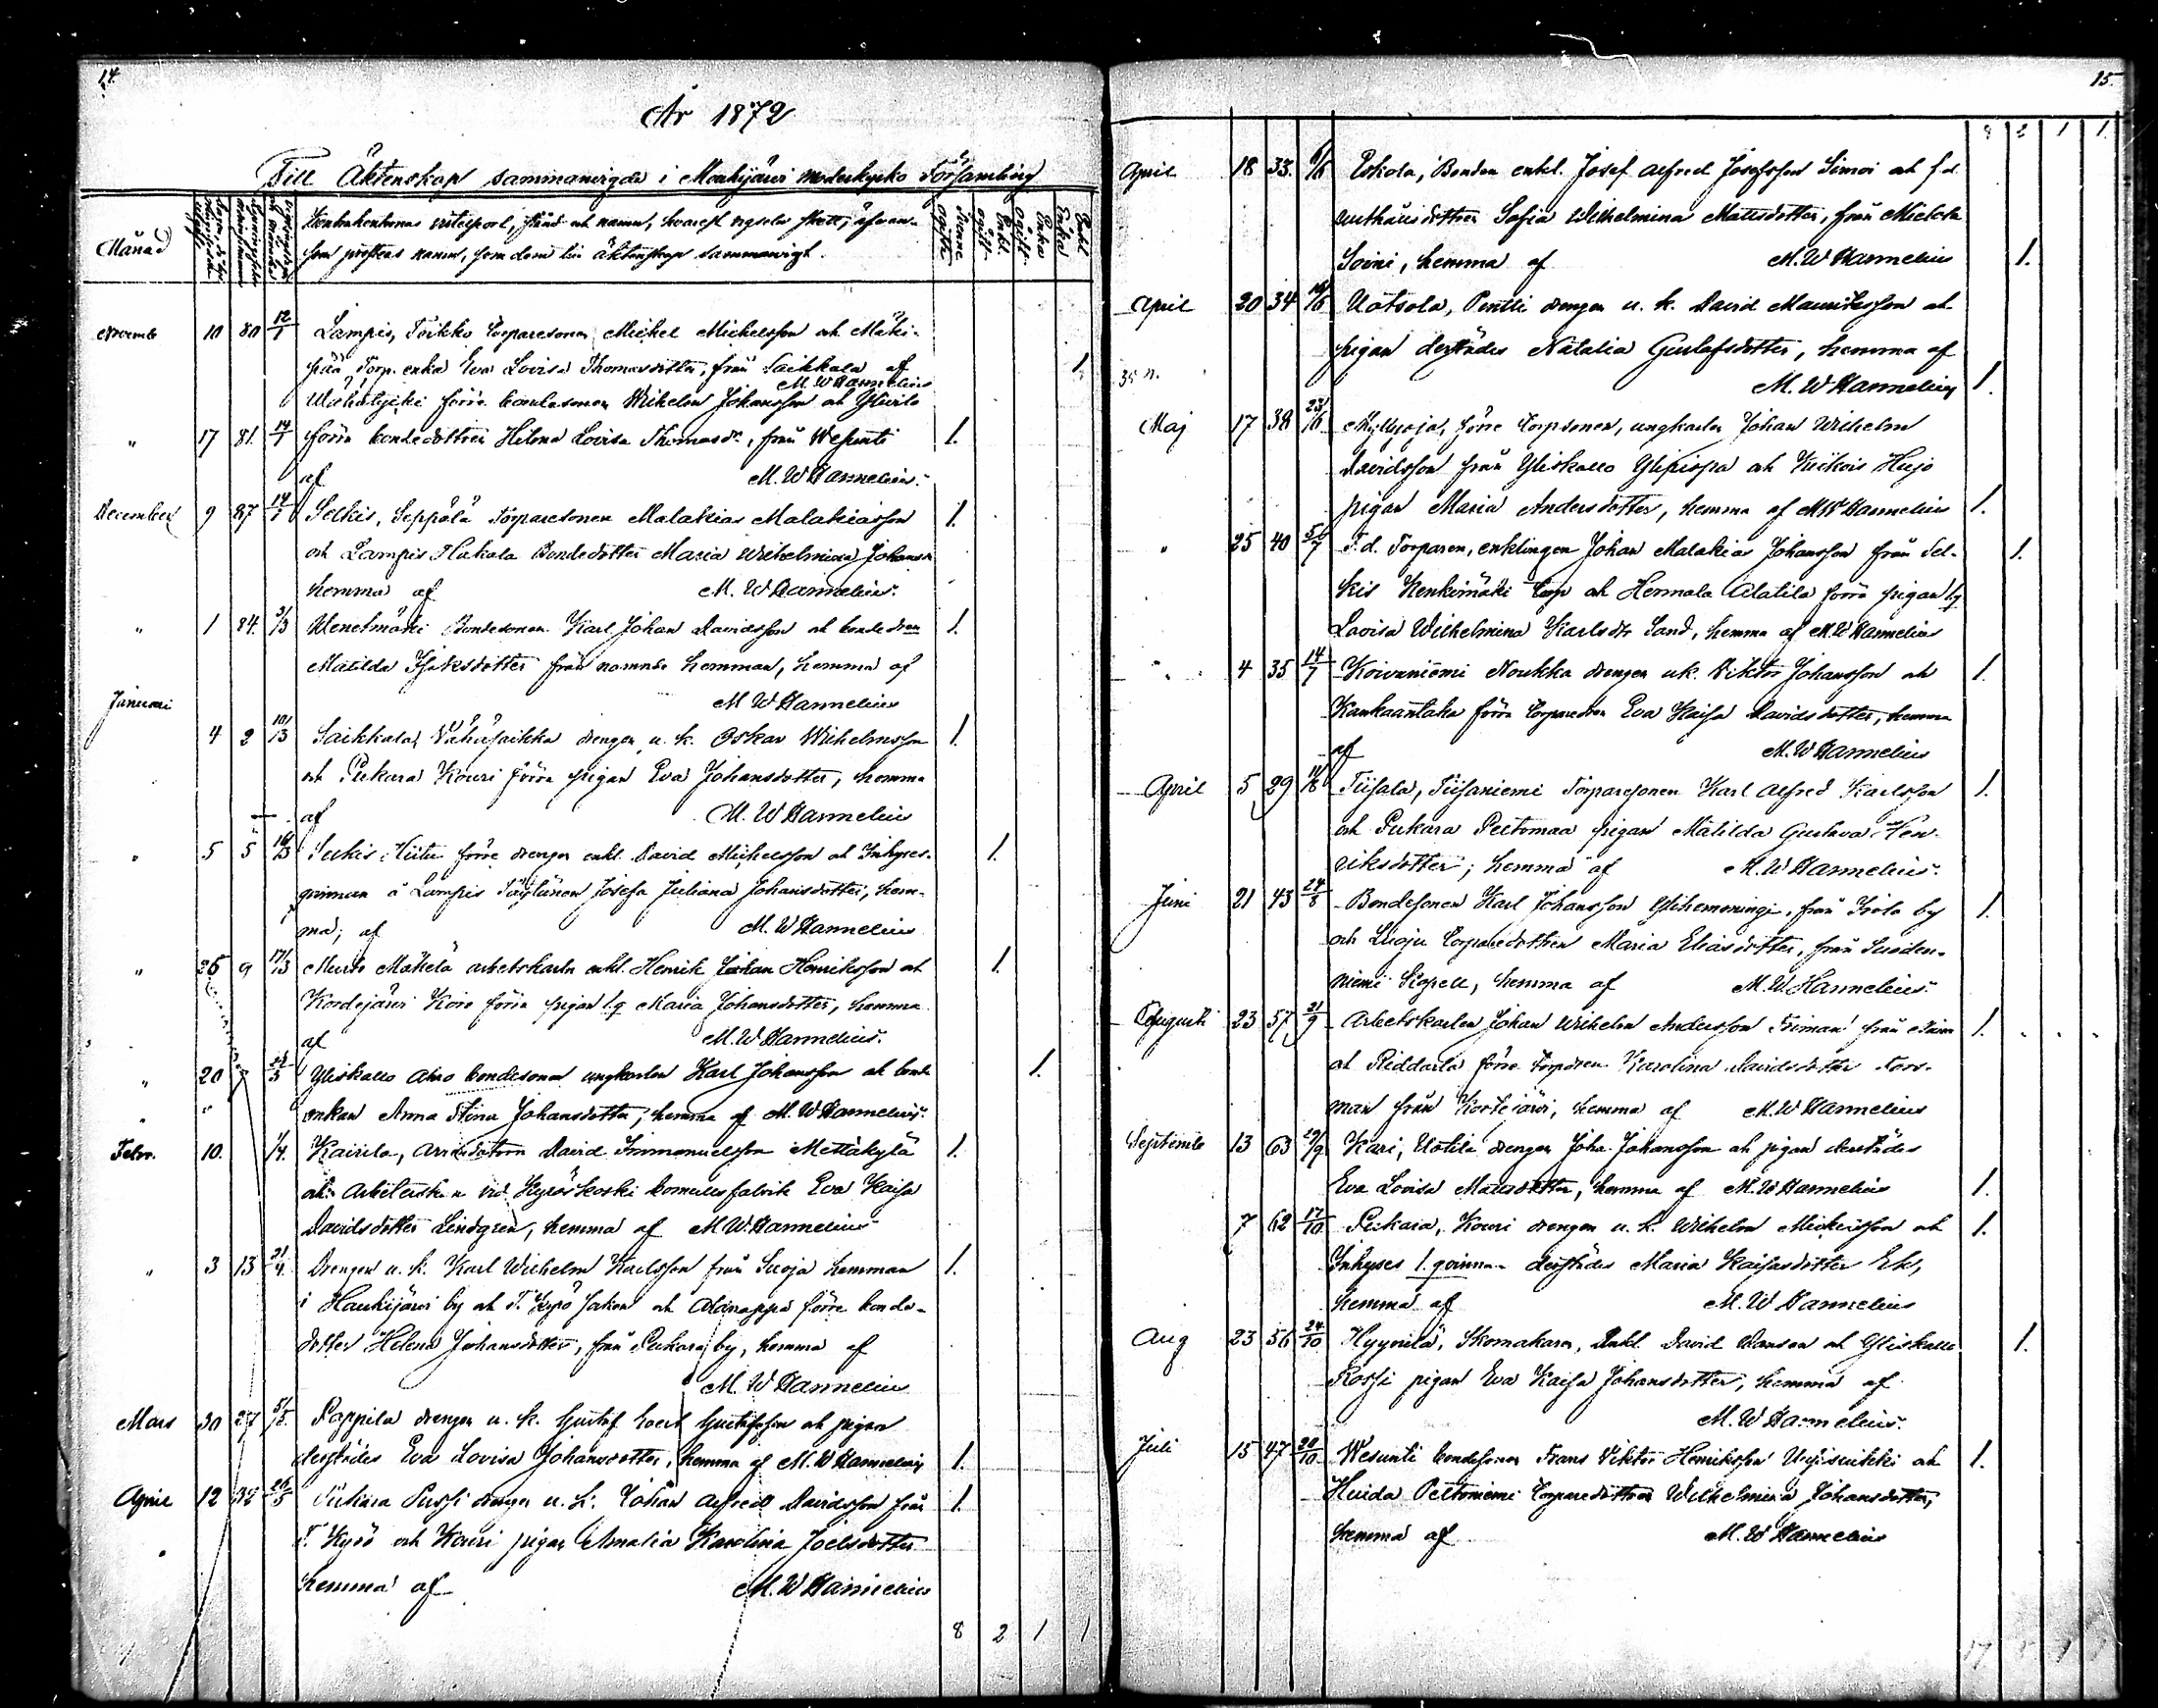 14.
År 1872
Till Äktenskap sammanvigda i Mouhijärvi moderkyrko Församling
Månad
Kontrahenternas vistelseort, stånd och namn, hvarest vigseln skett, äfvan-
som prestens namn, som dem till äktenskap sammanvigt.
Novemb 10 80 12/1 Lampis, Törkko Torparesonen Michel Michelsson och Mäki-
pää Torp. enka Eva Lovisa Thomasdotter, från Saikkala af 1
M. W Hannelius
förre bondesonen Wilhelm Johansson och Yliwili
" 17 81. 14/1 förra bondedottren Helena Lovisa Thomasdr, från Wesunti 1.
af M. W Hannelius.
December 9 87 14/1 Selkis, Seppälä Torparesonen Malakias Malakiasson 1.
och Lampis Hakala Bondedotter Maria Wilhelmina Johansdr
hemma af M. W Hannelius.
" 1 84. 3/3 Wenetmäki Bondesonen Karl Johan Davidsson och bondedren 1.
Matilda Isaksdotter från namnde hemman, hemma af
Januari M W Hannelius
4 2 10/3 Saikkala, Vähäsaikka drengen u. k. Oskar Wilhelmsson 1.
och Pukara Kouri förra pigan Eva Johansdotter, hemma
af M. W Hannelius
" 5 5 16/3 Selkis förre drengen enkl. David Michelsson och Inhyses- 1.
qvinnan å Lampis Josefa Juliana Johansdotter, hem-
ma, af M. W Hannelius
" 26 9 17/3 Murto Mäkelä arbetskarln enkl. Henrik Johan Henriksson och 1.
Kordejärvi Koivo förra pigan lq Maria Johansdotter, hemma
af M. W Hannelius.
" 20 7 Yliskallo Aho bondesonen ungkarlen Karl Johansson och bonde 1.
enkan Anna Stina Johansdotter, hemma af M. W Hannelius
Febr. 10. 1/4. Kairila, Arrendatorn David Immanuelsson Mettäkylä 1.
och Arbeterskan vid Kyröskoski bomullsfabrik Eva Kaisa
Davidsdotter Lindgren, hemma af M W Hannelius
" 3 13 21/4 Drengen u. k. Karl Wilhelm Karlsson från Suoja hemman 1.
i Haukijärvi by och T. Kyrö Socken och Alanappa förre bonde-
dotter Helena Johansdotter, från Pukara by, hemma af
M. W Hannelius
Mars 30 27 5/5. Pappila drengen u. k. Gustaf Evert Gustafsson och pigan
derstädes Eva Lovisa Johansdotter, hemma af M. W Hannelius 1.
April 12 32 26/5 Pukara Pussi drengen u. k. Johan Alfred Davidsson från 1.
T. Kyrö och Kouri pigan Amalia Karolina Joelsdotter
hemma af M. W Hannelius
8 2 1 1
15.
8 2 1 1.
April 18 33. 9/6 Eskola, Bonden enkl. Josef Alfred Josefsson Simoi och f.d.
Sofia Wilhelmina Mattsdotter, från Mickola
Soini, hemma af M. W Hannelius 1.
April 20 34 16/6 Uotsola, Pentti drengen u. k. David Mauritsson och
pigan derstädes Natalia Gustafsdotter, hemma af
35 n. M. W Hannelius 1.
Maj 17 38 23/6 Myllyoja, förre Torpsonen, ungkarln Johan Wilhelm
Davidsson från Yliskallo Ylipispa och Kuikois Hujo
pigan Maria Andersdotter, hemma af M W Hannelius 1.
" 25 40 5/7 F.d. Torparen, enklingen Johan Malakias Johansson från Sel- 1.
kis Kenkimäki Torp och Hermala Alatila förra pigan lq
Lovisa Wilhelmina Karlsdr Sand, hemma af M. W Hannelius
" 4 35 14/7 Koivuniemi Noukka drengen uk. Viktor Johansson och 1.
Kankaantaka förra Torparedren Eva Kaisa Davidsdotter, hemma
af M. W Hannelius
April 5 29 11/8 Tiisala, Tiisaniemi Torparesonen Karl Alfred Karlsson 1.
och Pukara Peltomaa pigan Matilda Gustava Hen-
riksdotter; hemma af M. W Hannelius.
Juni 21 43 24/8 Bondesonen Karl Johansson Ylihemmingi, från Isola by 1.
och Suoju Torparedottren Maria Eliasdotter, från Suoden-
niemi Kapell, hemma af M. W. Hannelius.
Augusti 23 57 21/9 Arbetskarlen Johan Wilhelm Andersson Friman från 1.
och Riddarla förre Torpdren Karolina Davidsdotter Fors-
man från Kortejärvi, hemma af M. W Hannelius
Septemb 13 63 29/9 Kari, Uotila drengen Joha. Johansson och pigan derstädes
Eva Lovisa Mattsdotter, hemma af M. W Hannelius 1.
7 62 17/10 Pukara, Kouri drengen u. k. Wilhelm Mickelsson och 1.
Inhyses l. qvinnan derstädes Maria Kaisasdotter Ek,
hemma af M. W Hannelius
Aug 23 56 24/10 Hyynilä, Skomakaren, Enkl. David Manson och Yliskallo 1.
Rossi pigan Eva Kaisa Johansdotter, hemma af
M. W Hannelius.
Juli 15 47 28/10 Wesunti bondesonen Frans Viktor Henriksson Uusisuikki och 1.
Huida Peltoniemi Torparedottren Wilhelmina Johansdotter,
hemma af M. W Hannelius
17